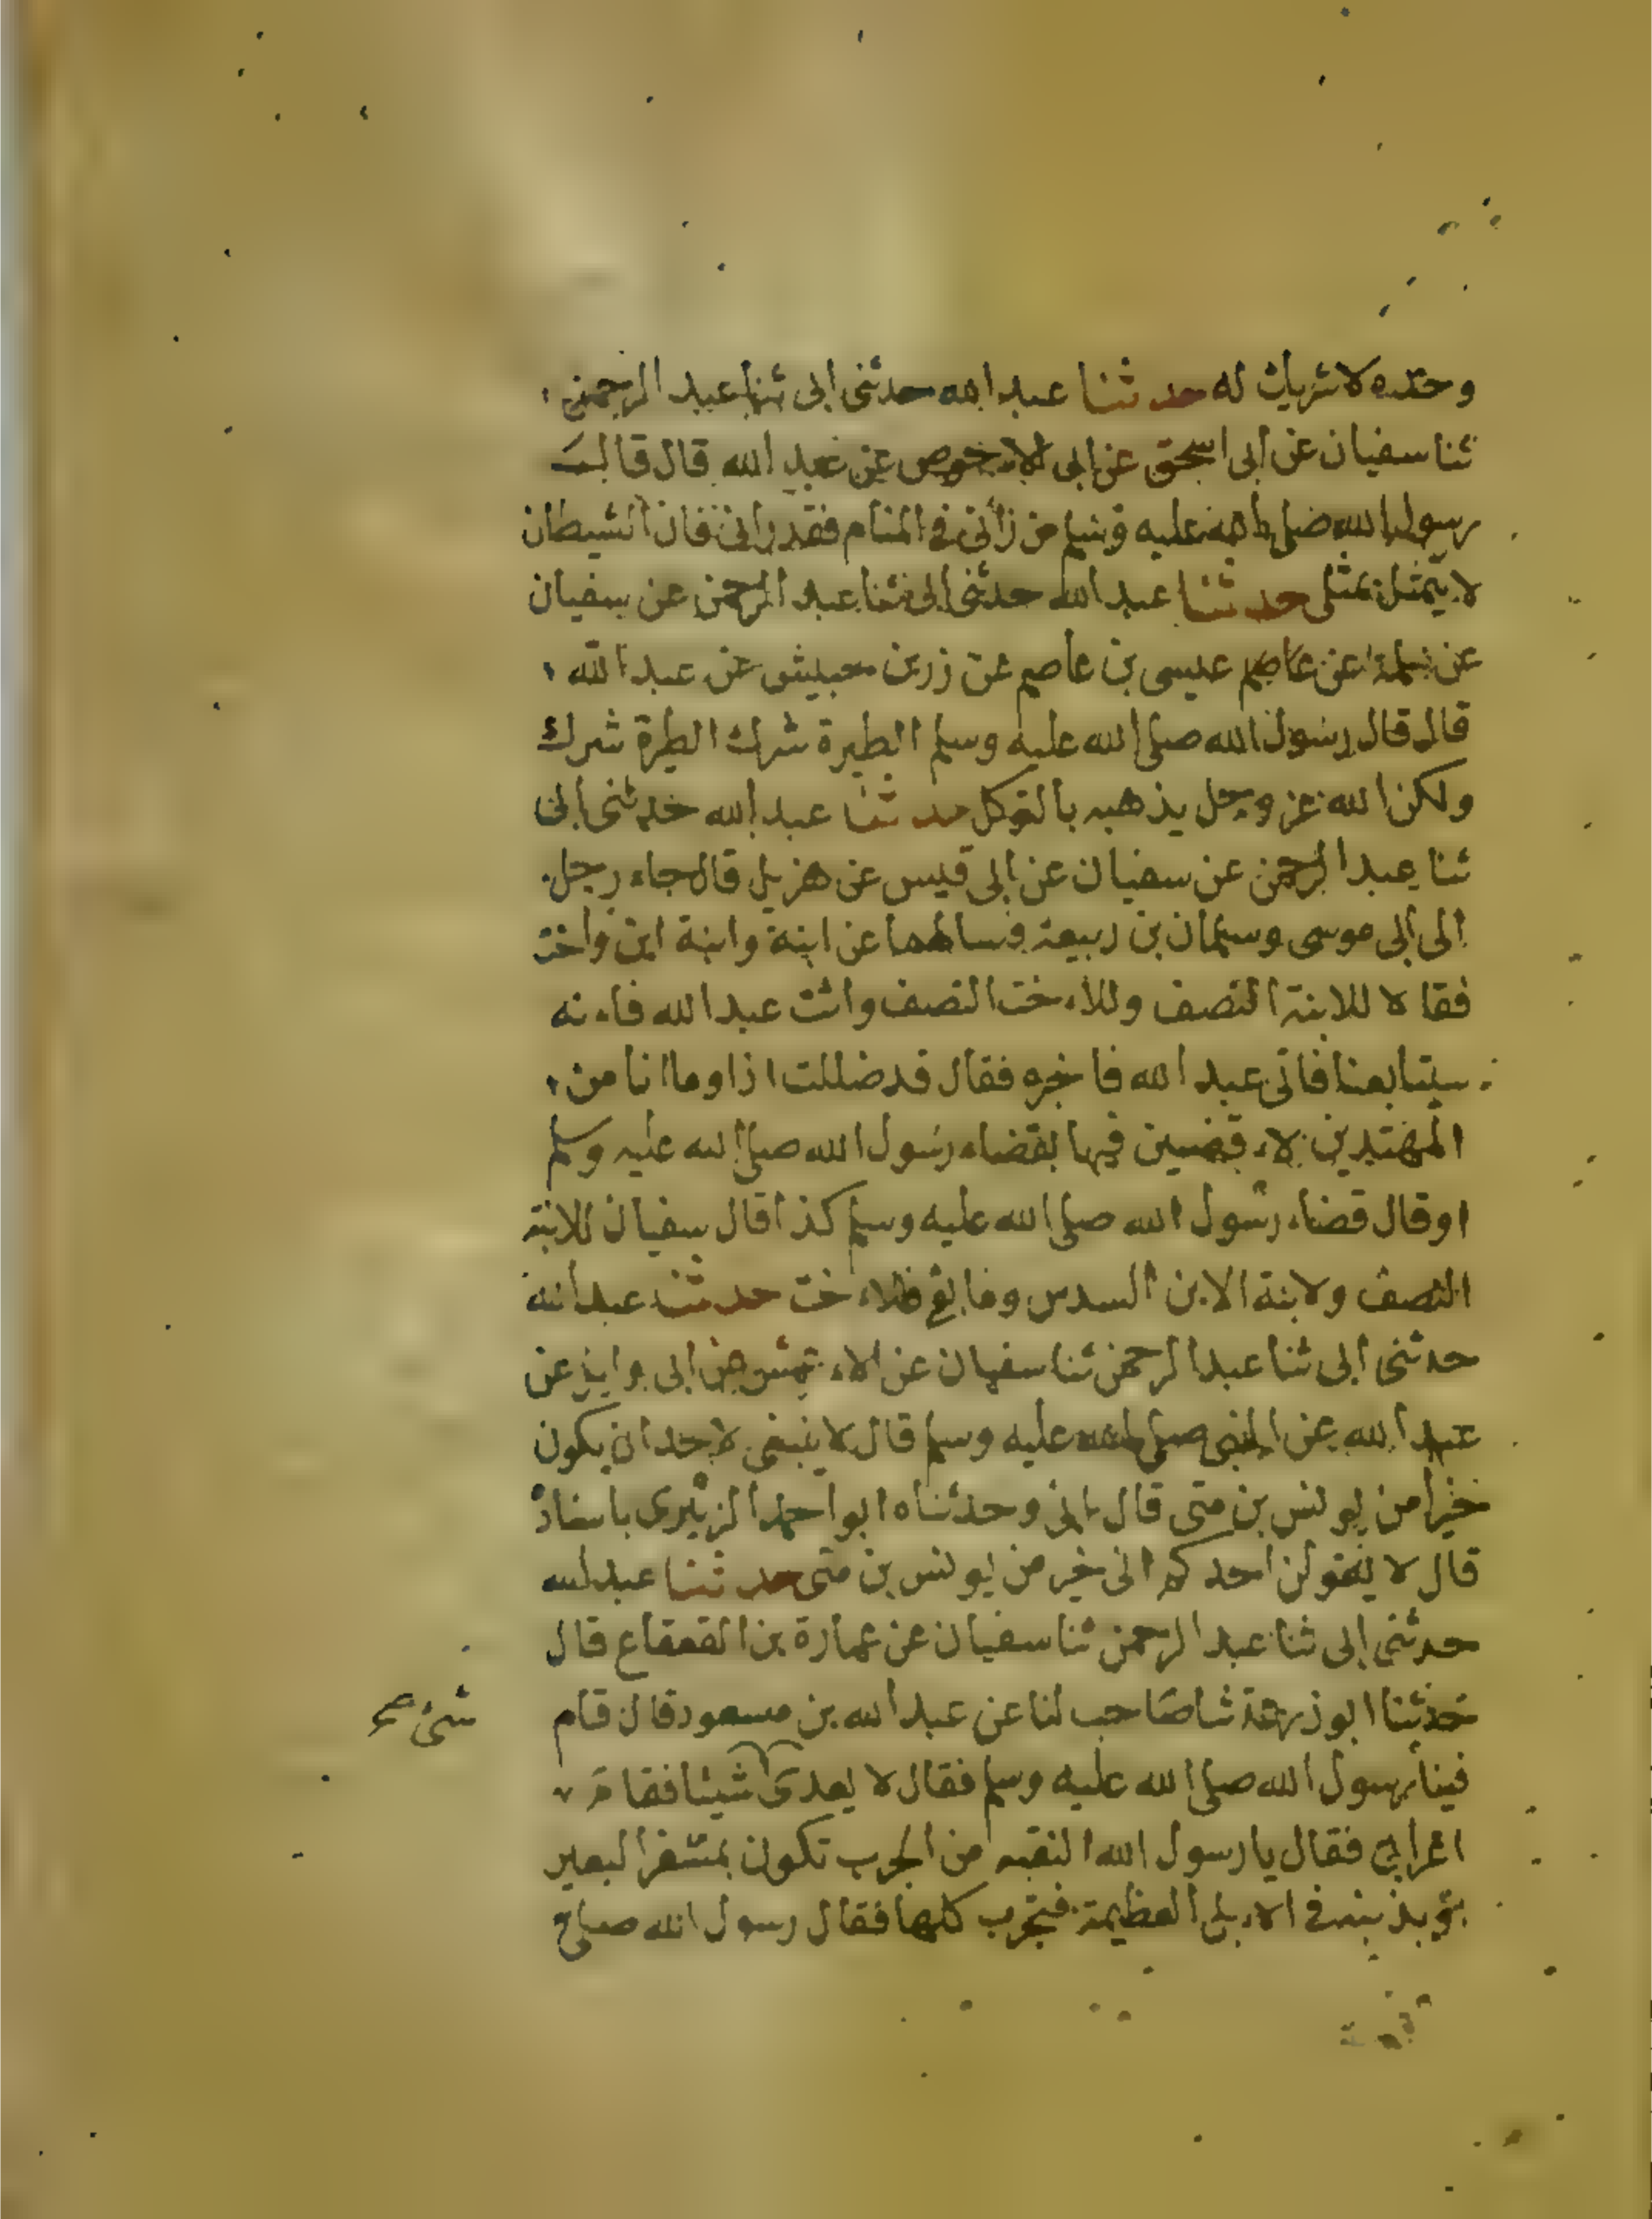 وحده لا شريك له حدثنا عبد الله حدثني ابي ثنا عبد الرحمن
ثنا سفيان عن ابي اسحق عن ابي الاحوص عن عبد الله قال قال
رسول الله صلى الله عليه وسلم من رآني في المنام فقد رآني فان الشيطان
لا يتمثل بمثلي حدثنا عبد الله حدثني ابي ثنا عبد الرحمن عن سفيان
عن سلمة عن عاصم عيسى بن عاصم عن زر بن حبيش عن عبد الله
قال قال رسول الله صلى الله عليه وسلم الطيرة شرك الطيرة شرك
ولكن الله عز وجل يذهبه بالتوكل حدثنا عبد الله حدثني ابي
ثنا عبد الرحمن عن سفيان عن ابي قيس عن هزيل قال جاء رجل
الى ابي موسى وسلمان بن ربيعة فسالهما عن ابنة وابنة ابن واخت
فقالا للابنة النصف وللاخت النصف وائت عبد الله فانه
سيتابعنا فاتى عبد الله فاخبره فقال قد ضللت اذا وما انا من
المهتدين لاقضين فيها بقضاء رسول الله صلى الله عليه وسلم
او قال قضاء رسول الله صلى الله عليه وسلم كذا قال سفيان للابنة
النصف ولابنة الابن السدس وما بقي فللاخت حدثنا عبد الله
حدثني ابي ثنا عبد الرحمن ثنا سفيان عن الاعمش عن ابي وايل عن
عبد الله عن النبي صلى الله عليه وسلم قال لا ينبغي لاحد ان يكون
خيرا من يونس بن متى قال ابي وحدثناه ابو احمد الزبيري باسناده
قال لا يقولن احدكم اني خير من يونس بن متى حدثنا عبد الله
حدثني ابي ثنا عبد الرحمن ثنا سفيان عن عمارة بن القعقاع قال
حدثنا ابو زرعة ثنا صاحب لنا عن عبد الله بن مسعود قال قام
شئ صح
فينا رسول الله صلى الله عليه وسلم فقال لا يعدى شيئا فقام
اعرابي فقال يا رسول الله النقبة من الجرب تكون بمشفر البعير
او بذنبه في الابل العظيمة فتجرب كلها فقال رسول الله صلى